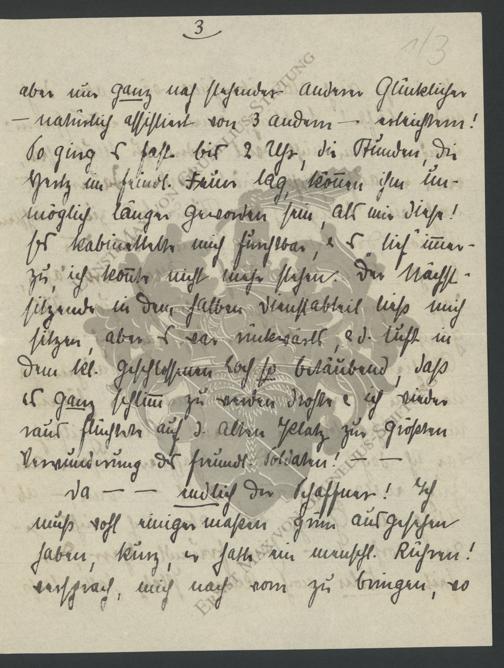 3
1/3
aber nur ganz nah stehender anderer Glücklicher
– natürlich assistiert von 3 andern – erleichtern!
So ging es fast bis 2 Uhr, die Stunden, die
im feindl. Feuer lag, können ihm un-
möglich länger geworden sein, als mir diese!
Es kabinettelte mich furchtbar, & es lief immer-
zu, ich konnte nicht mehr stehen. Der Nächst-
sitzende in dem halben Dienstabteil ließ mich
sitzen, aber es war rückwärts, & d. Luft in
dem kl. geschlossenen Loch so betäubend, daß
es ganz schlimm zu werden drohte & ich wieder
raus flüchtete auf d. alten Platz zur größten
Verwunderung der freundl. Soldaten! –
Da – – endlich der Schaffner! Ich
muß wohl einigermaßen grün ausgesehen
haben, kurz, er hatte ein menschl. Rühren!
versprach, mich nach vorn zu bringen, wo
ERNST MAX VON GRUNELIUS-STIFTUNG
ERNST MAX VON GRUNELIUS-STIFTUNG